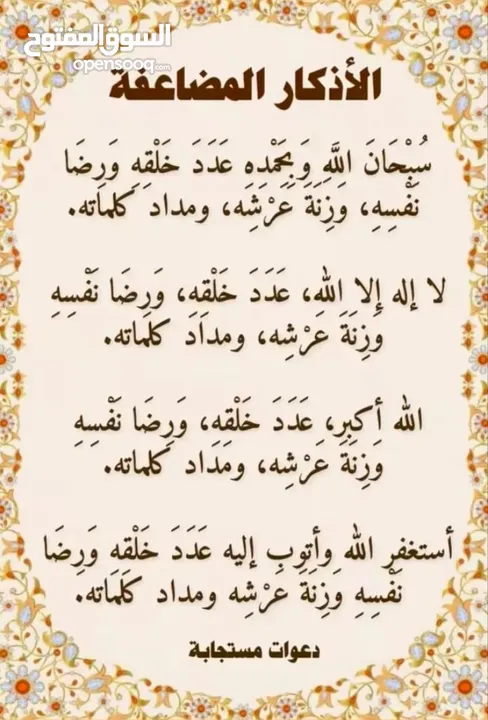 السوق المفتوح
opensooq.com
الأذكار المضاعفة
سُبْحَانَ اللَّهِ وَبِحَمْدِهِ عَدَدَ خَلْقِهِ وَرِضَا
نَفْسِهِ، وَزِنَةَ عَرْشِه، ومداد كلماته.
لا إله إلا الله، عَدَدَ خَلْقِهِ، وَرِضَا نَفْسِهِ
وَزِنَةَ عَرْشِه، ومداد كلماته.
الله أكبر، عَدَدَ خَلْقِهِ، وَرِضَا نَفْسِهِ
وَزِنَةَ عَرْشِه، ومداد كلماته.
أستغفر الله وأتوب إليه عَدَدَ خَلْقِهِ وَرِضَا
نَفْسِهِ وَزِنَةَ عَرْشِه ومداد كلماته.
دعوات مستجابة